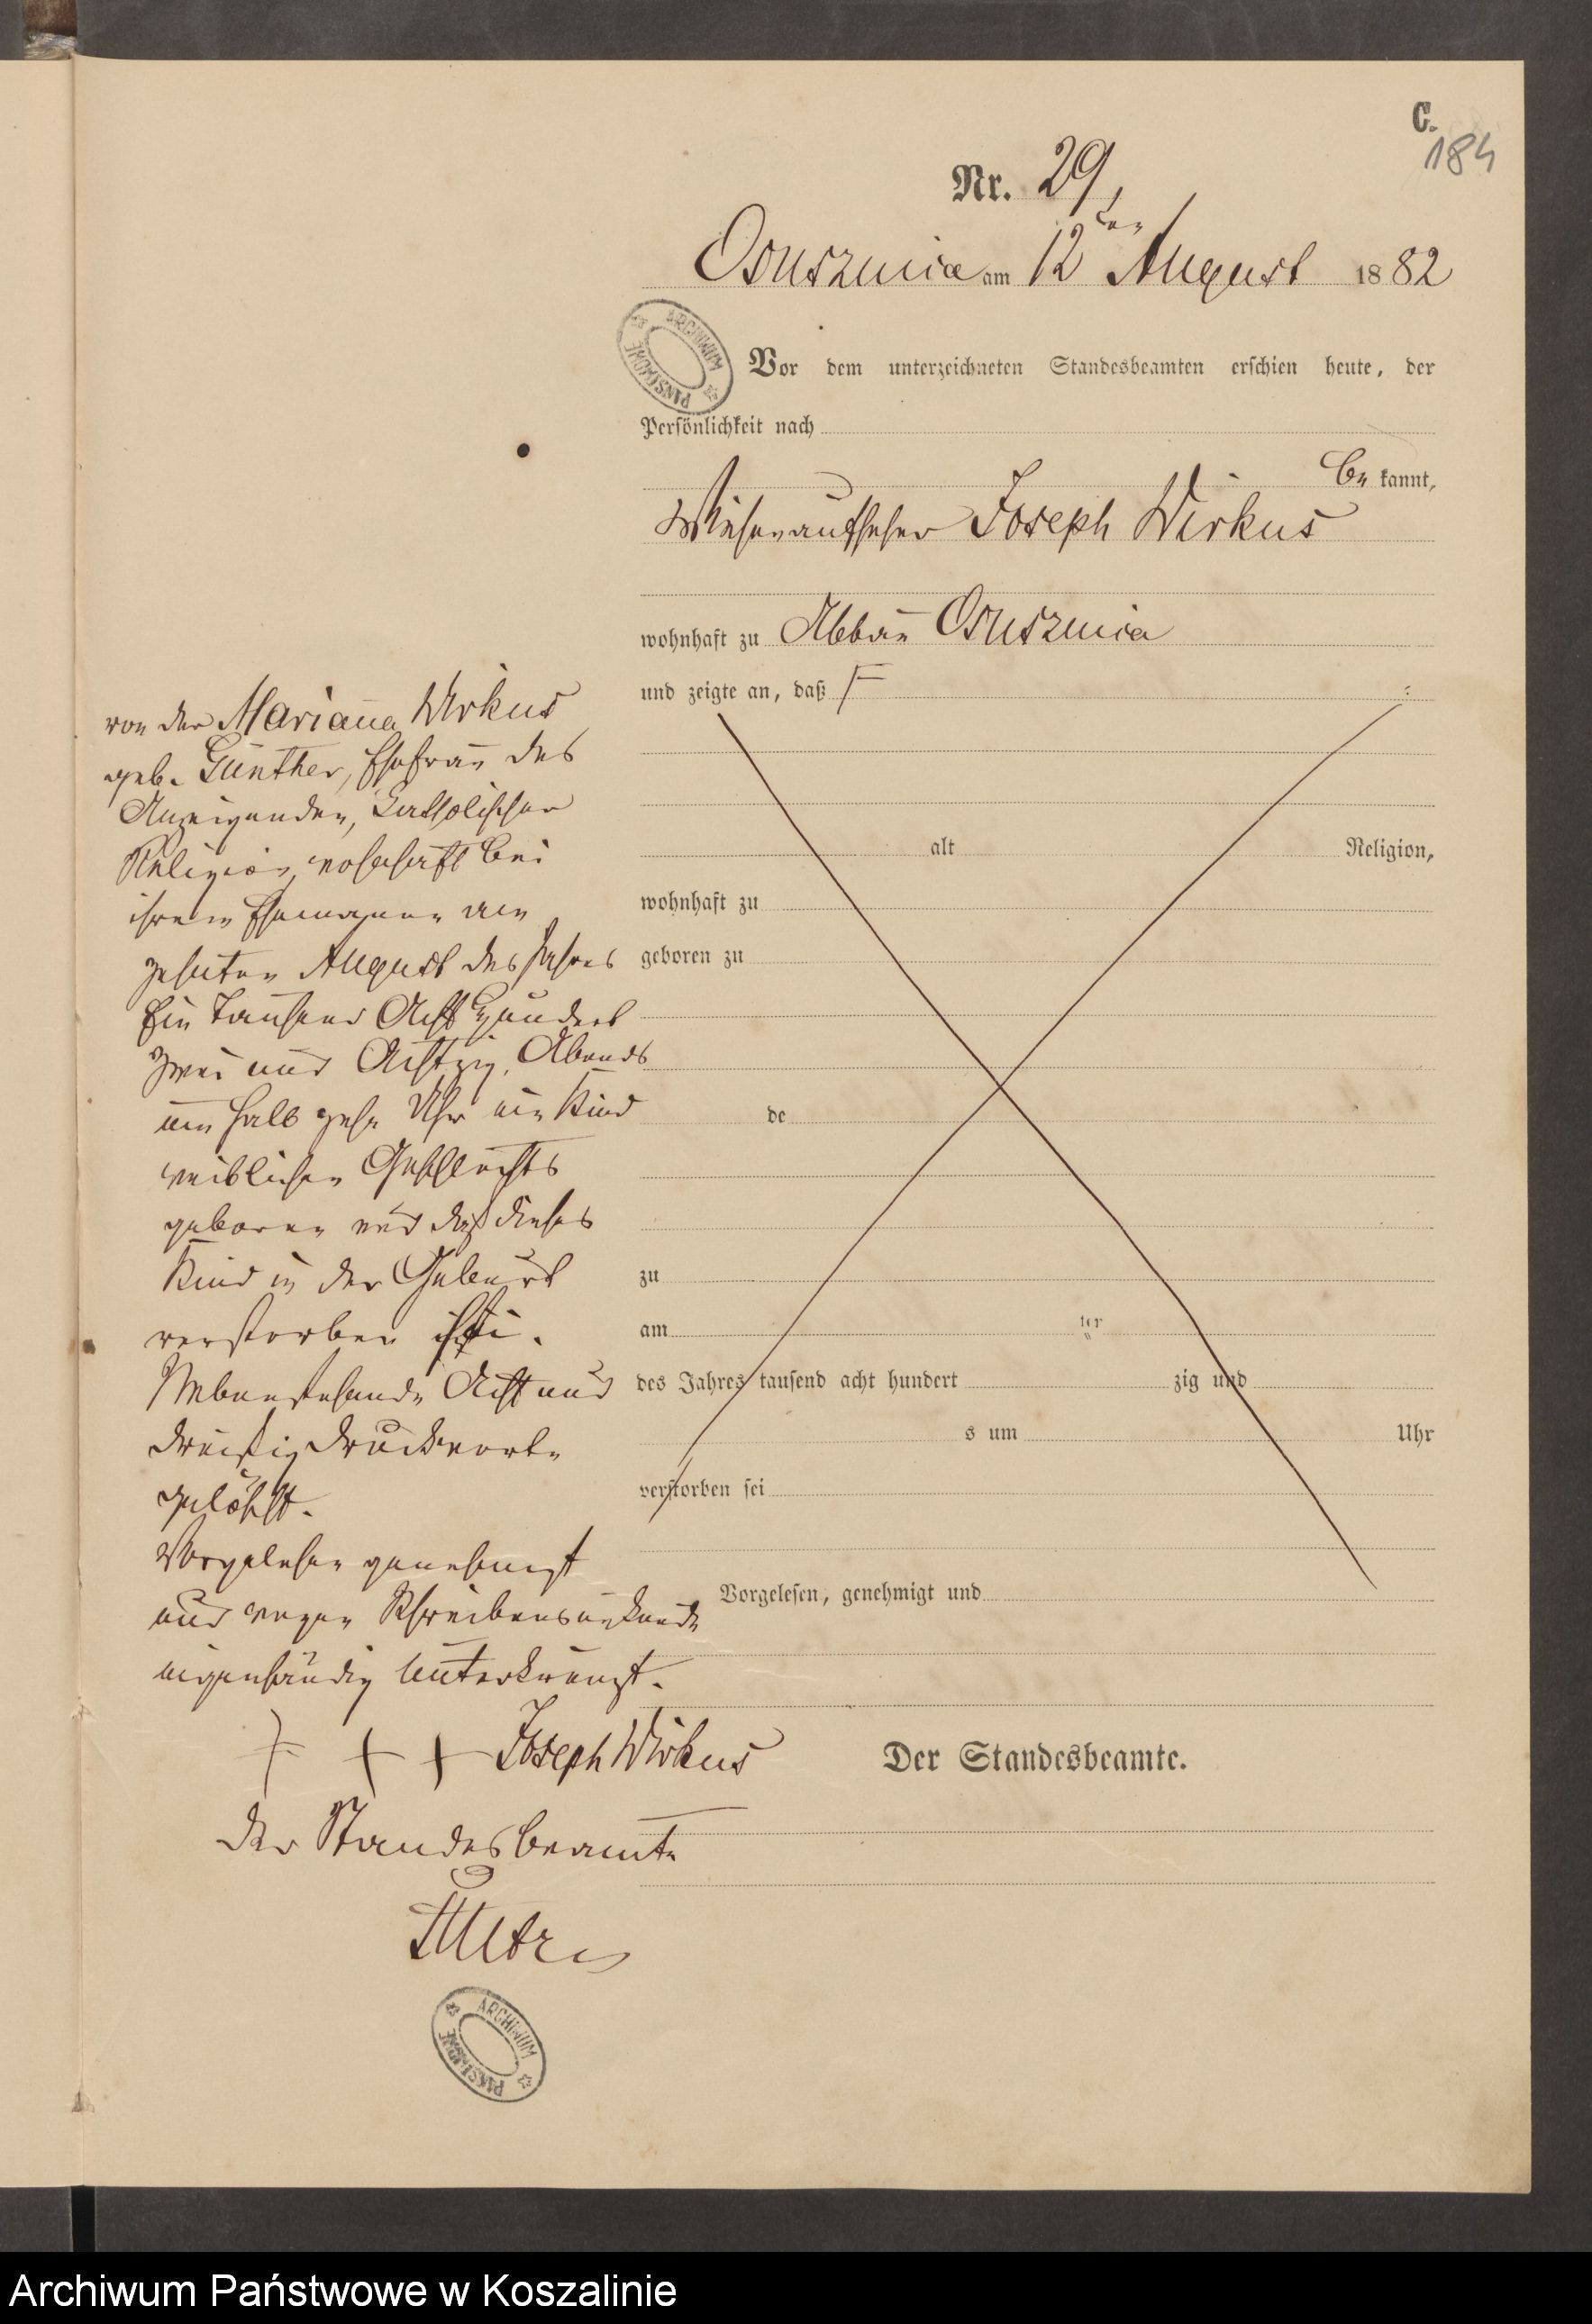 C.
184
Nr. 29,
Osusznica am 12ten August 1882
ARCHIWUM PAŃSTWOWE
Vor dem unterzeichneten Standesbeamten erschien heute, der
Persönlichkeit nach
be kannt,
Wiesenaufseher Joseph Wirkus
wohnhaft zu Abbau Osusznica
und zeigte an, daß
von der Marianna Wirkus
geb. Günther, Ehefrau des
Anzeigenden, katholischer
Religion, wohnhaft bei
ihrem Ehemanne am
zehnten August des Jahres
Ein Tausend Acht Hundert
zwei und Achtzig, Abends
um halb zehn Uhr ein Kind
weiblichen Geschlechts
geboren und daß dieses
Kind in der Geburt
verstorben sei.
Nebenstehende Acht und
dreißig Druckworte
gelöscht.
Vorgelesen genehmigt
und wegen Schreibensunkunde
eigenhändig unterkreuzt.
+ + + Joseph Wirkus
Der Standesbeamte
alt Religion,
wohnhaft zu
geboren zu
de
zu
am ten
des Jahres tausend acht hundert zig und
s um Uhr
verstorben sei
Vorgelesen, genehmigt und
Der Standesbeamte.
ARCHIWUM PAŃSTWOWE
Archiwum Państwowe w Koszalinie